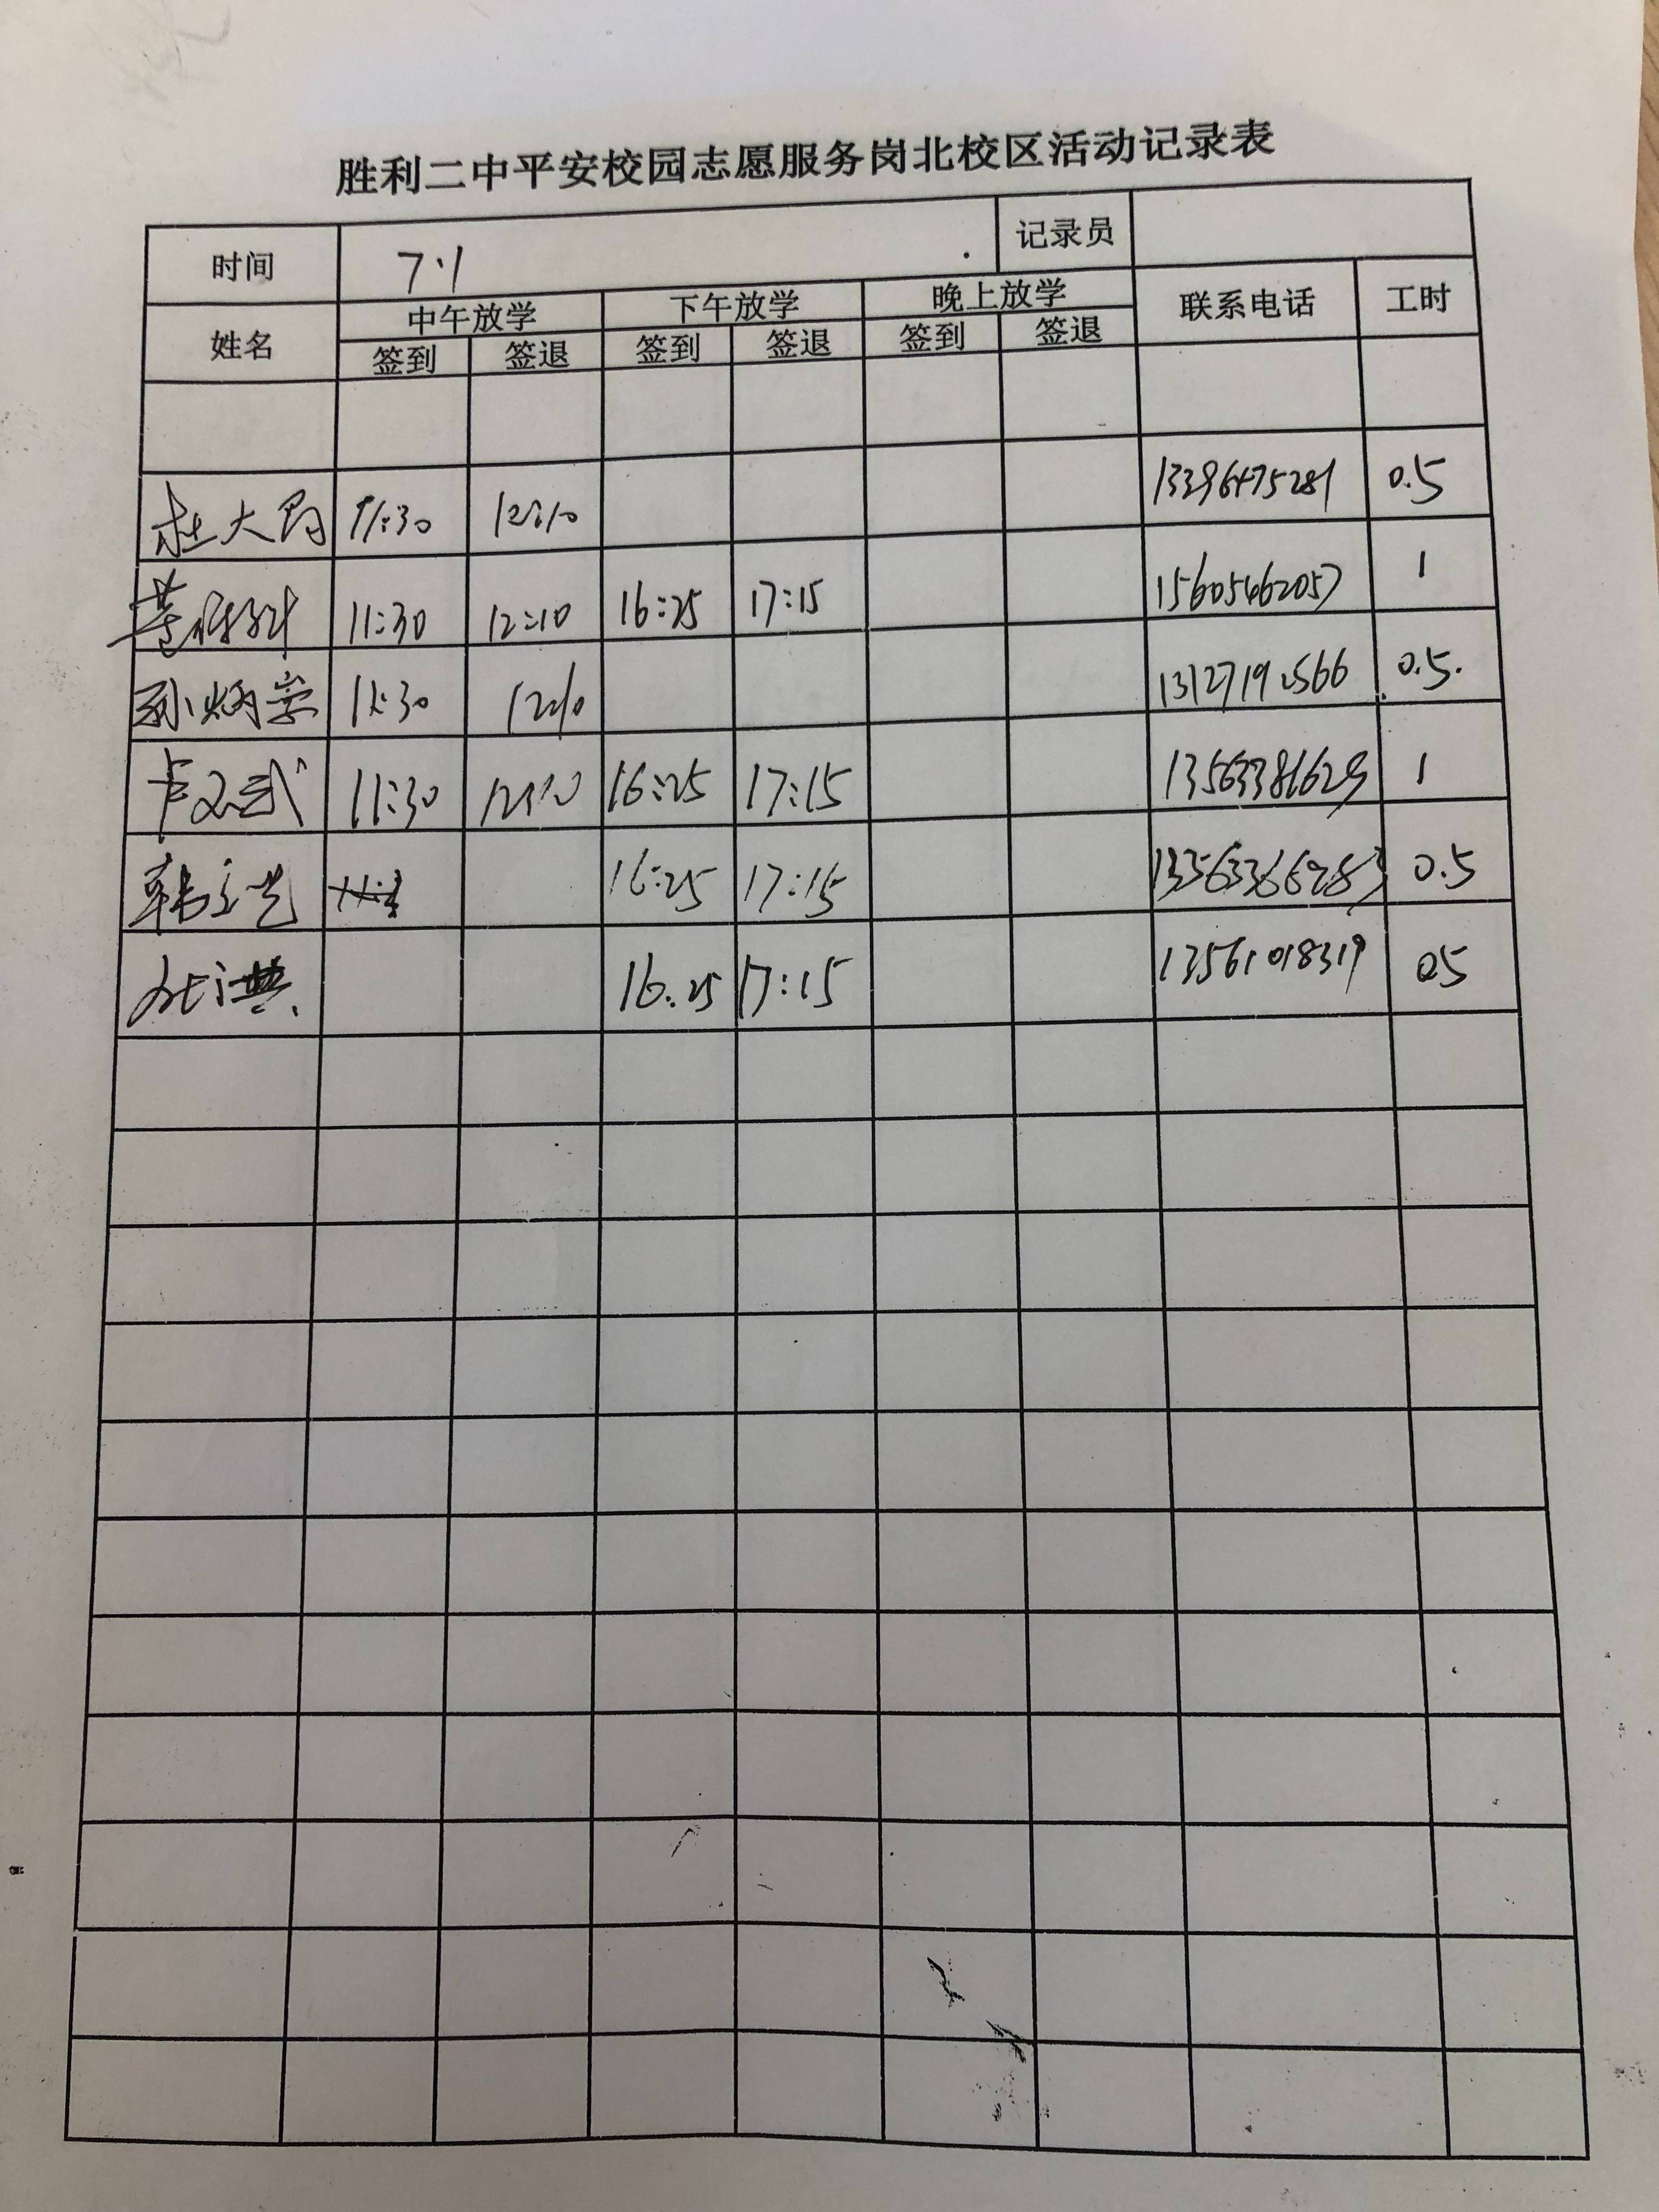 胜利二中平安校园志愿服务岗北校区活动记录表
时间 7.1 记录员
姓名 中午放学 下午放学 晚上放学 联系电话 工时
签到 签退 签到 签退 签到 签退
杜大 11:30 12:10 13396475281 0.5
11:30 12:10 16:25 17:15 15605462057 1
孙炳崇 11:30 12:10 13127192566 0.5.
卞文武 11:30 12:10 16:25 17:15 13563381629 1
韩 16:25 17:15 0.5
16.25 17:15 13561018319 05